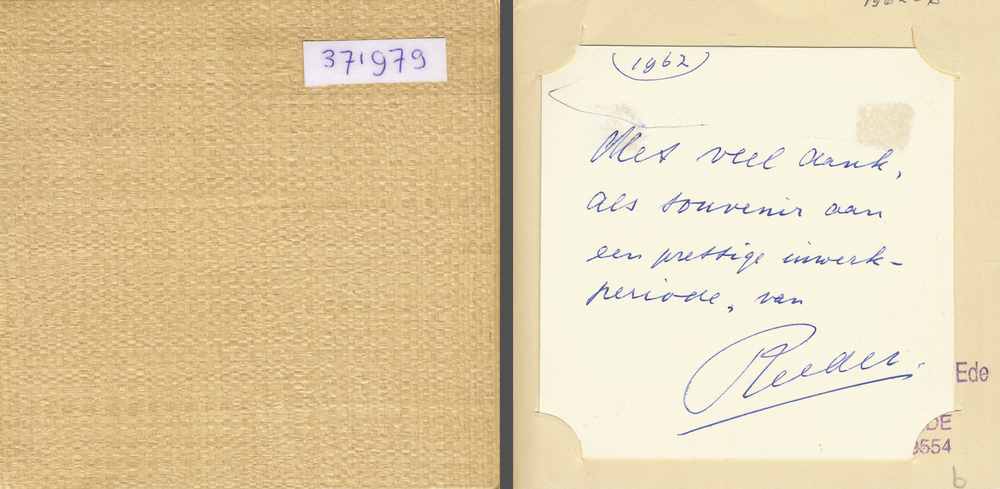 371979
(1962)
Met veel dank,
als souvenir aan
een prettige inwerk-
periode, van
Reeder.
Ede
DE
9554
b